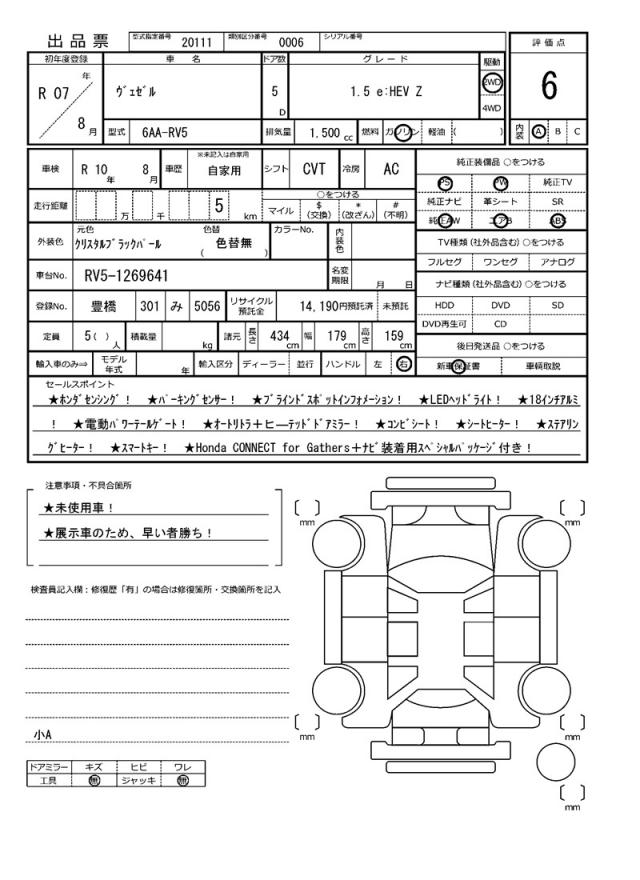 出品票 型式指定番号 20111 類別区分番号 0006 シリアル番号
評価点
初年度登録 車名 ドア数 グレード 駆動
R 07 年 8 月 ヴェゼル 5 D 1.5 e:HEV Z 2WD 4WD
6
型式 6AA-RV5 排気量 1.500 cc 燃料 ガソリン 軽油 ( )
内装 A B C
車検 R 10 年 8 月 車歴 ※未記入は自家用 自家用 シフト CVT 冷房 AC
純正装備品 ○をつける
PS PW 純正TV
純正ナビ 革シート SR
純正AW エアB ABS
走行距離 万 千 5 km
○をつける
マイル $ (交換) * (改ざん) # (不明)
外装色 元色 クリスタルブラックパール 色替 ( 色替無 ) カラーNo. 内装色
TV種類 (社外品含む) ○をつける
フルセグ ワンセグ アナログ
車台No. RV5-1269641 名変期限 月 日
ナビ種類 (社外品含む) ○をつける
HDD DVD SD
DVD再生可 CD
登録No. 豊橋 301 み 5056 リサイクル預託金 14,190円預託済 未預託
定員 5( ) 人 積載量 kg 諸元 長さ 434 cm 幅 179 cm 高さ 159 cm
後日発送品 ○をつける
新車保証書 車輌取説
輸入車のみ⇒ モデル年式 年 輸入区分 ディーラー 並行 ハンドル 左 右
セールスポイント
★ホンダセンシング！ ★パーキングセンサー！ ★ブラインドスポットインフォメーション！ ★LEDヘッドライト！ ★18インチアルミ
！ ★電動パワーテールゲート！ ★オートリトラ＋ヒーテッドドアミラー！ ★コンビシート！ ★シートヒーター！ ★ステアリン
グヒーター！ ★スマートキー！ ★Honda CONNECT for Gathers＋ナビ装着用スペシャルパッケージ付き！
注意事項・不具合箇所
★未使用車！
★展示車のため、早い者勝ち！
検査員記入欄：修復歴「有」の場合は修復箇所・交換箇所を記入
小A
ドアミラー キズ ヒビ ワレ
工具 無 ジャッキ 無
[ ] mm
[ ] mm
[ ] mm
[ ] mm
[ ] mm